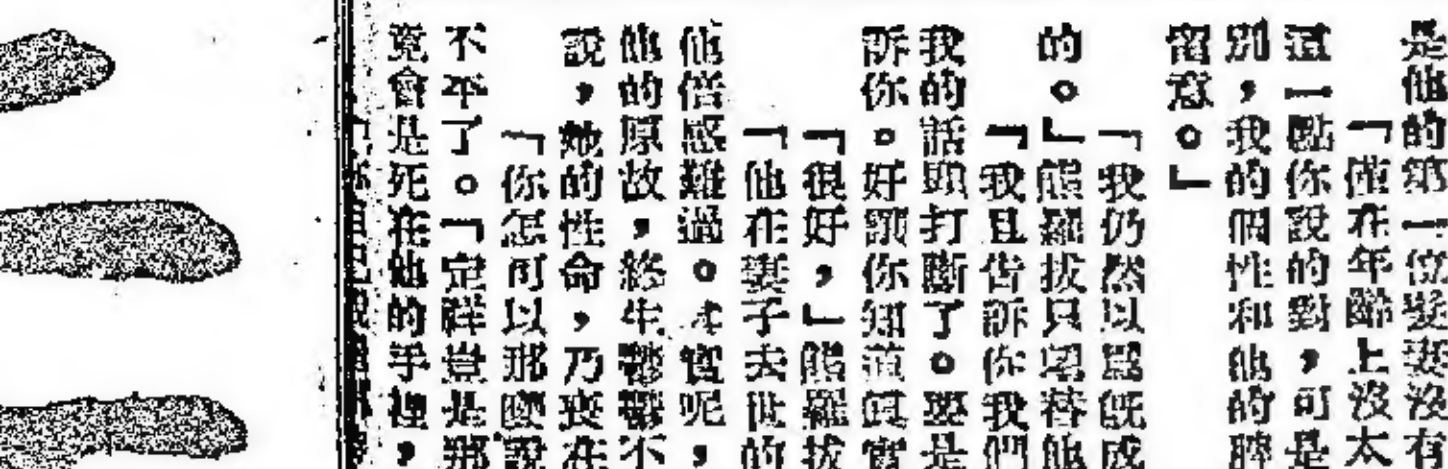 是他的第一位髮妻沒有
「僅在年齡上沒太
這一點你說的對，可是
別，我的個性和他的脾
留意。」
「我仍然以爲既成
的。」熊羅拔只望替他
「我且告訴你我們
我的話頭打斷了。要是
訴你。好讓你知道眞實
「很好，」熊羅拔
「他在妻子去世的
他倍感難過。才實呢，
他的原故，終生鬱鬱不
說，她的性命，乃喪在
「你怎可以那麼說
不平了。「定祥豈是那
竟會是死在他的手裡，